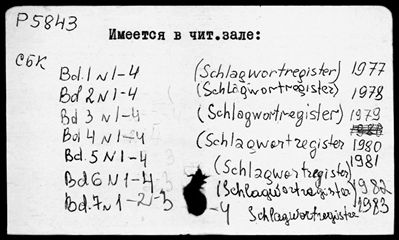 P5843
Имеется в чит.зале:
СБК
Bd.1 N1-4 (Schlagwortregister) 1977
Bd 2 N1-4 (Schlagwortregister) 1978
Bd 3 N1-4 (Schlagwortregister) 1979
Bd 4 N1-4 (Schlagwortregister 1980
Bd.5 N1-4 (Schlagwortregister) 1981
Bd 6 N1-4 (Schlagwortregister 1982
Bd.7 N1-2-3-4 Schlagwortregister 1983